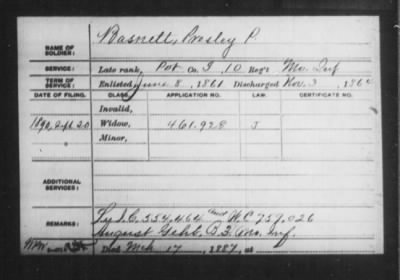 NAME OF SOLDIER: Basnett, Presley P.
SERVICE: Late rank, Pvt Co. I, 10 Reg't Mo. Inf
TERM OF SERVICE: Enlisted June 8, 1861 Discharged Nov. 3, 1864
DATE OF FILING. CLASS. APPLICATION NO. LAW. CERTIFICATE NO.
Invalid,
1890, Sept 20 Widow, 461.928 J
Minor,
ADDITIONAL SERVICES:
REMARKS: 554,464 and W.C 759,026
August Gehb. B 3 Mo. Inf.
Died Mch 17, 1887, at